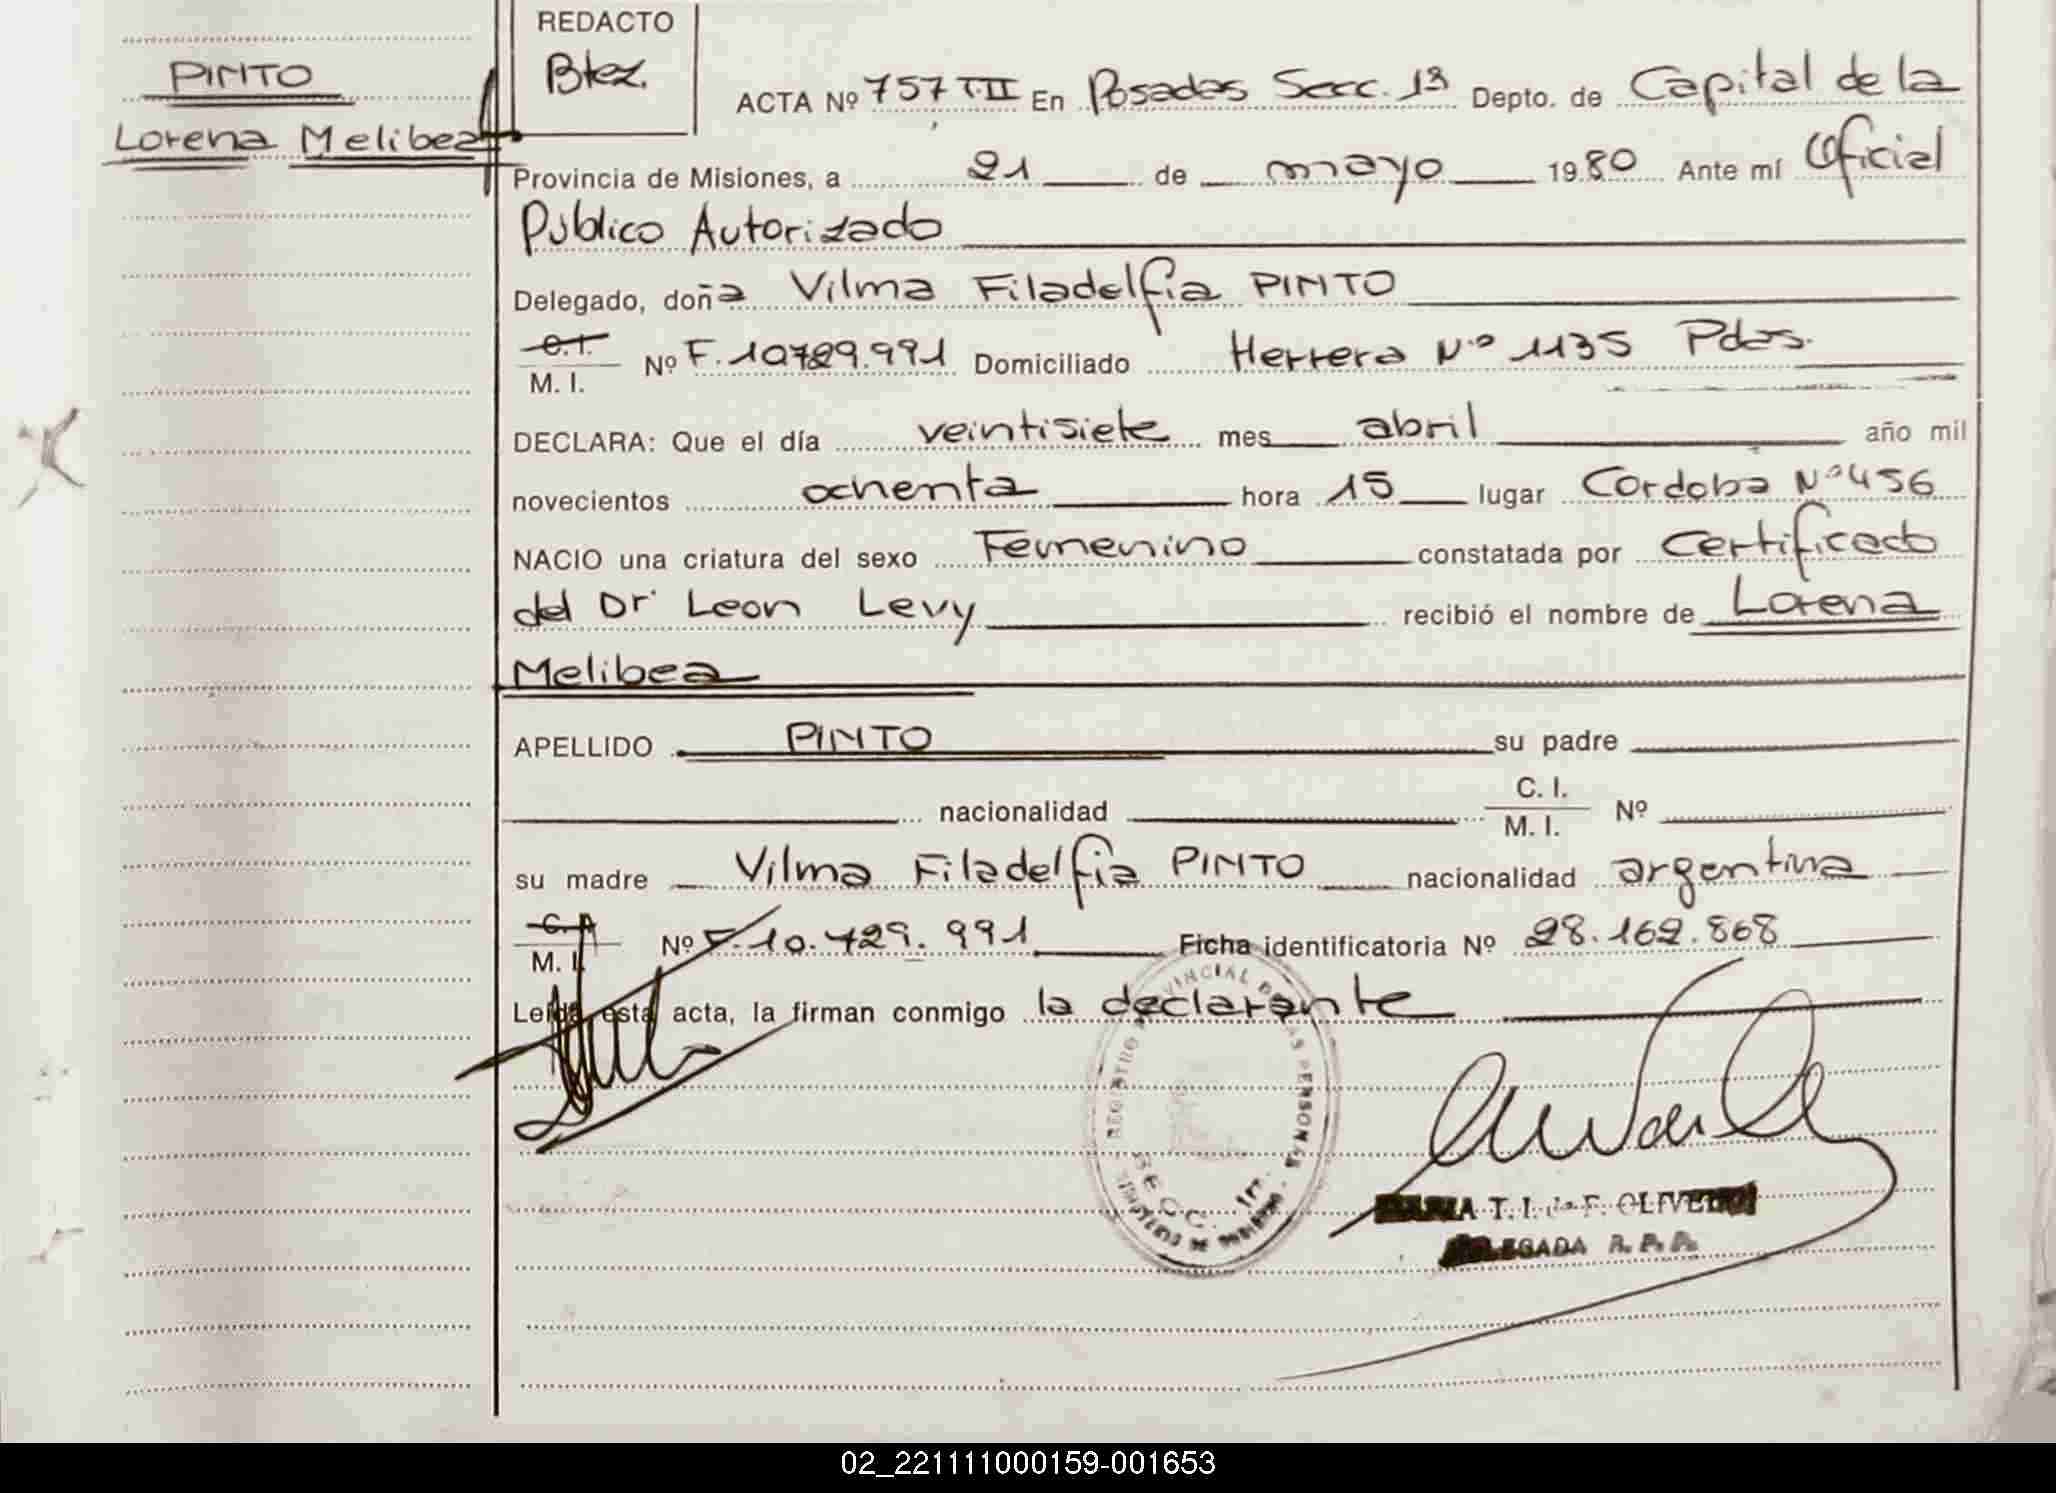 PINTO
Lorena Melibea
REDACTO
Btez.
ACTA Nº 757 T.II En Posadas Secc. 1ª Depto. de Capital de la
Provincia de Misiones, a 21 de mayo 1980 Ante mí Oficial
Público Autorizado
Delegado, doña Vilma Filadelfia PINTO
C.I.
M. I. Nº F. 10.729.991 Domiciliado Herrera Nº 1135 Pdas.
DECLARA: Que el día veintisiete mes abril año mil
novecientos ochenta hora 15 lugar Cordoba Nº 456
NACIO una criatura del sexo Femenino constatada por Certificado
del Dr. Leon Levy recibió el nombre de Lorena
Melibea
APELLIDO PINTO su padre
nacionalidad C. I.
M. I. Nº
su madre Vilma Filadelfia PINTO nacionalidad argentina
C. I.
M. I. Nº F. 10.729.991 Ficha identificatoria Nº 28.162.868
Leída esta acta, la firman conmigo la declarante
REGISTRO PROVINCIAL DE LAS PERSONAS
SECC. 1ra.
MARIA T. I. de F. OLIVEIRA
DELEGADA R. P. P.
02_221111000159-001653